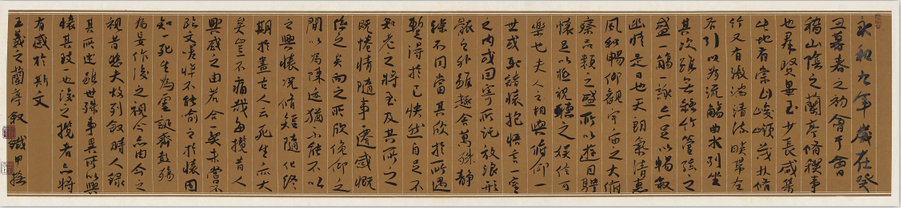 永和九年歲在癸
丑暮春之初會于會
稽山陰之蘭亭脩禊事
也群賢畢至少長咸集
此地有崇山峻領茂林脩
竹又有激湍清流暎帶左
右引以為流觴曲水列坐
其次雖無絲竹管弦之
盛一觴一詠亦足以暢敘
幽情是日也天朗氣清惠
風和暢仰觀宇宙之大俯
察品類之盛所以遊目騁
懷足以極視聽之娛信可
樂也夫人之相與俯仰一
世或取諸懷抱悟言一室
之內或因寄所託放浪形
骸之外雖趣舍萬殊靜
躁不同當其欣於所遇
蹔得於己快然自足不
知老之將至及其所之
既惓情隨事遷感慨
係之矣向之所欣俛仰之
間以為陳迹猶不能不以
之興懷況脩短隨化終
期於盡古人云死生亦大
矣豈不痛哉每攬昔人
興感之由若合一契未嘗不
臨文嗟悼不能喻之於懷固
知一死生為虛誕齊彭殤
為妄作後之視今亦由今之
視昔悲夫故列敘時人錄
其所述雖世殊事異所以興
懷其致一也後之攬者亦將
有感於斯文
王羲之蘭亭敘